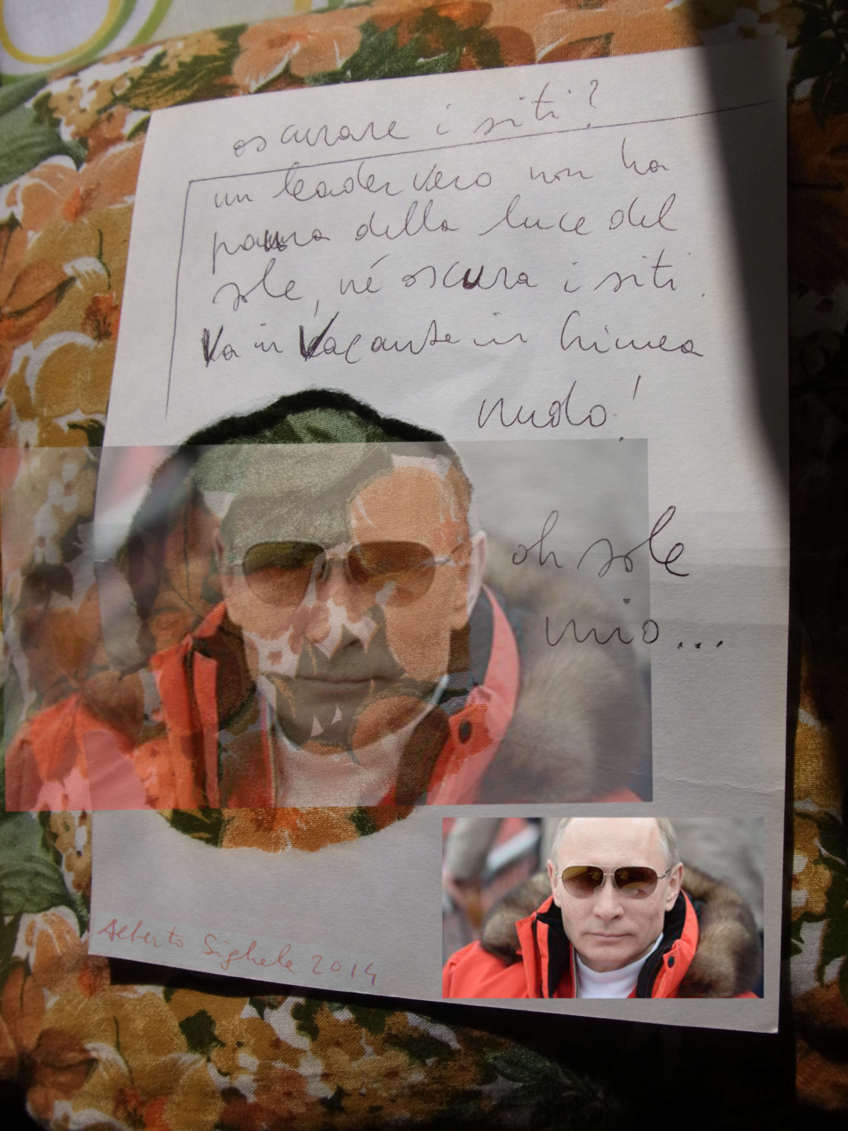 oscurare i siti?
un leader vero non ha
paura della luce del
sole, né oscura i siti.
Va in Vacanze in Crimea
nudo!
oh sole
mio...
Alberto Sighele 2014